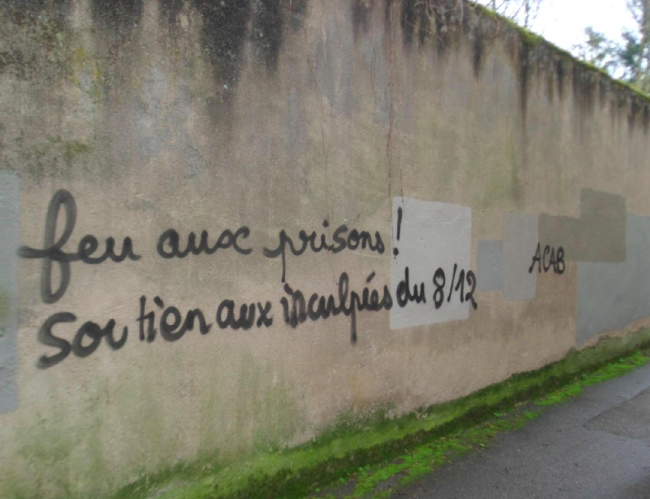 feu aux prisons!
Soutien aux inculpées du 8/12
ACAB